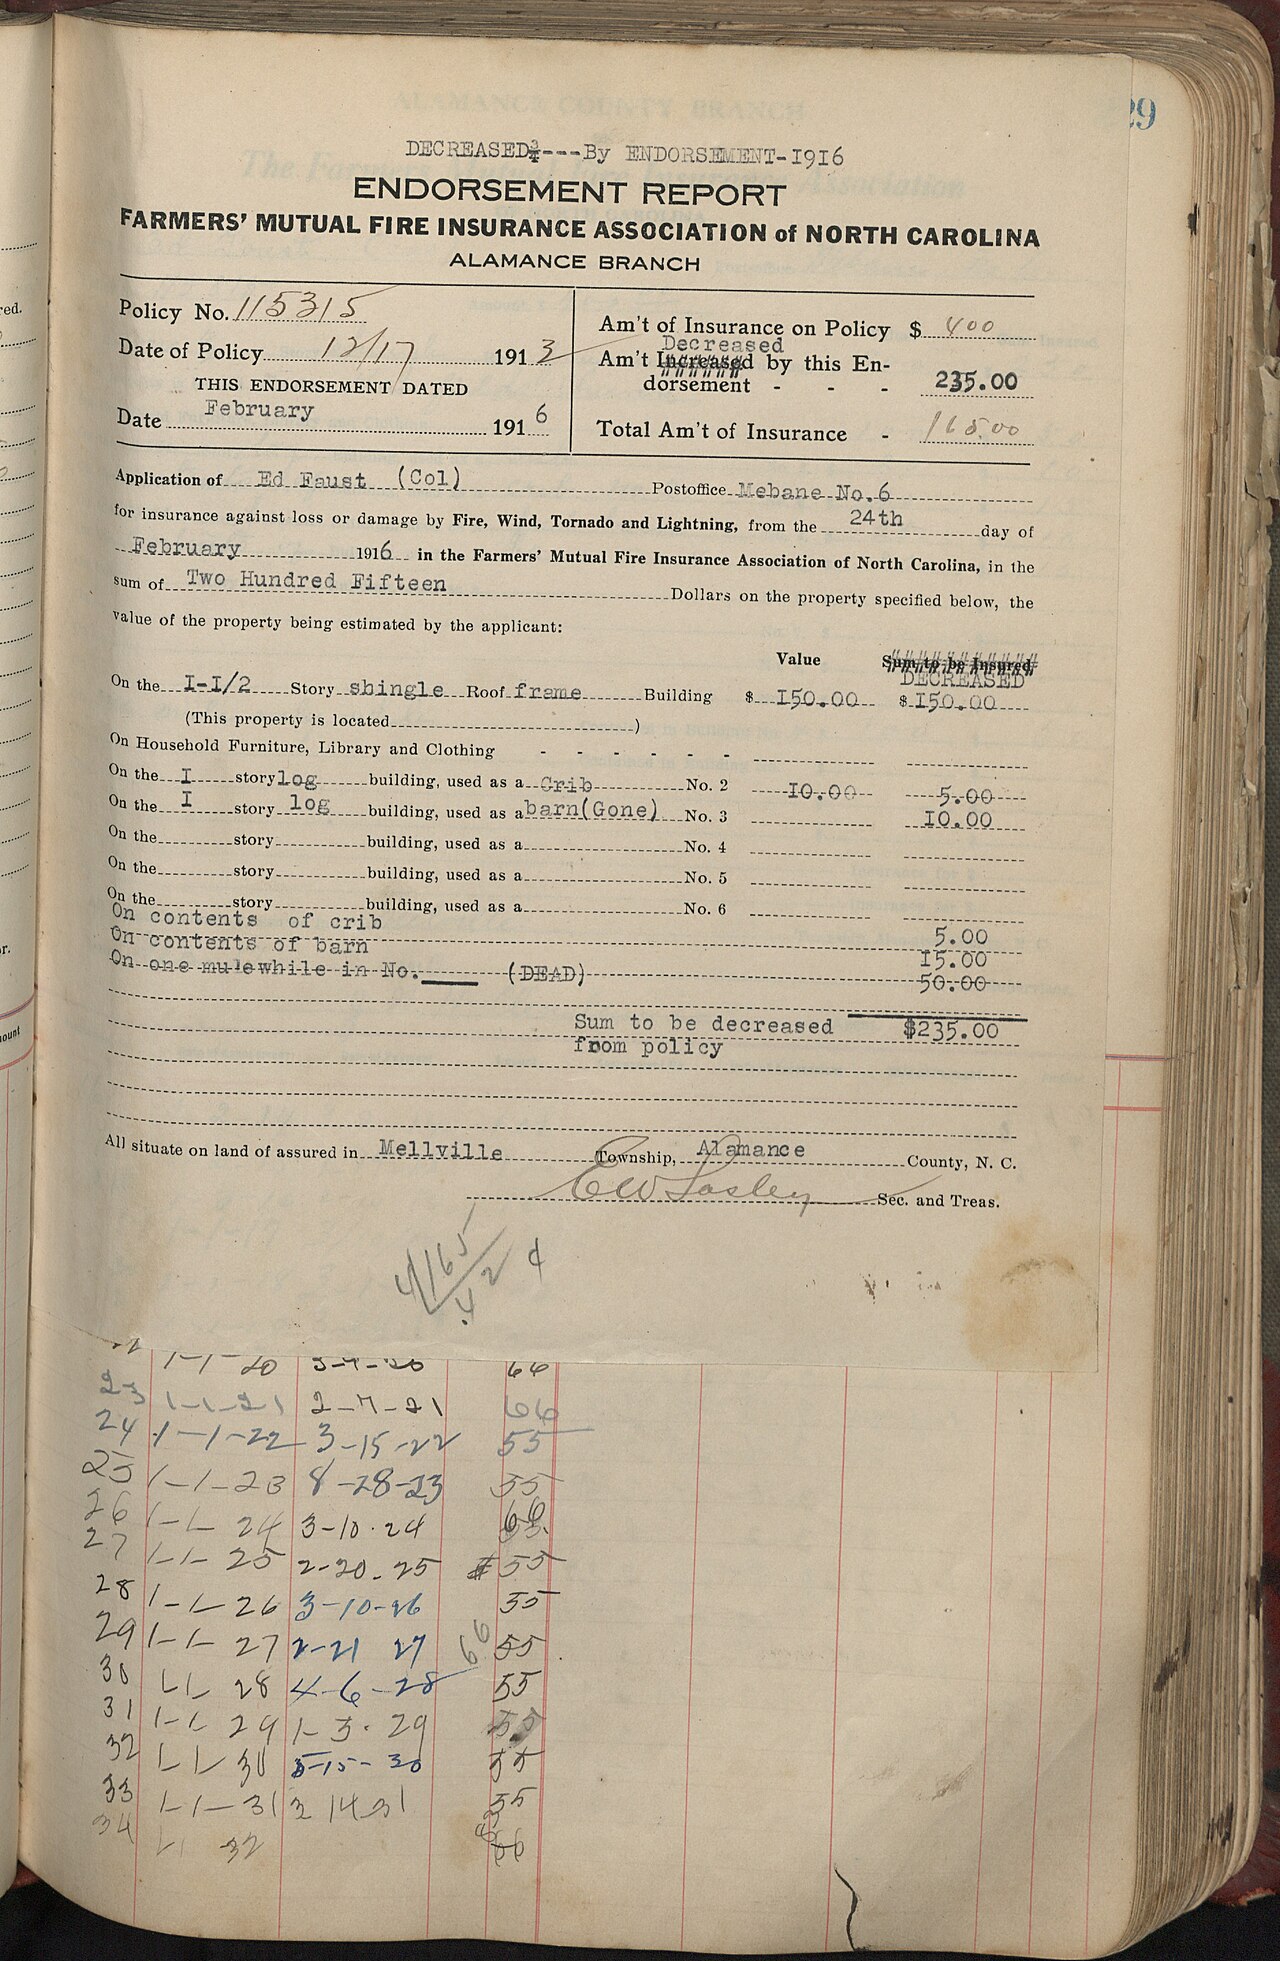 29
DECREASED----By ENDORSEMENT-1916
ENDORSEMENT REPORT
FARMERS' MUTUAL FIRE INSURANCE ASSOCIATION of NORTH CAROLINA
ALAMANCE BRANCH
Policy No. 115315
Date of Policy 12/17 1913
THIS ENDORSEMENT DATED
Date February 1916
Am't of Insurance on Policy $ 400
Decreased
Am't Increased by this En-
dorsement - - - 235.00
Total Am't of Insurance - 165.00
Application of Ed Faust (Col) Postoffice Mebane No.6
for insurance against loss or damage by Fire, Wind, Tornado and Lightning, from the 24th day of
February 1916 in the Farmers' Mutual Fire Insurance Association of North Carolina, in the
sum of Two Hundred Fifteen Dollars on the property specified below, the
value of the property being estimated by the applicant:
Value Sum to be Insured
DECREASED
On the I-I/2 Story shingle Roof frame Building $ 150.00 $ 150.00
(This property is located )
On Household Furniture, Library and Clothing - - - - - -
On the I story log building, used as a Crib No. 2 10.00 5.00
On the I story log building, used as a barn(Gone) No. 3 10.00
On the story building, used as a No. 4
On the story building, used as a No. 5
On the story building, used as a No. 6
On contents of crib 5.00
On contents of barn 15.00
On one mule while in No. (DEAD) 50.00
Sum to be decreased $235.00
from policy
All situate on land of assured in Mellville Township, Alamance County, N. C.
E W Lasley Sec. and Treas.
4/165
.42 4
1-1-20 66
23 1-1-21 2-7-21 66
24 1-1-22 3-15-22 55
25 1-1-23 8-28-23 55
26 1-1-24 3-10-24 66
27 1-1-25 2-20-25 # 55
28 1-1-26 3-10-26 55
29 1-1-27 2-21 27 66 55
30 1-1-28 4-6-28 55
31 1-1-29 1-3-29 55
32 1-1-30 5-15-30 55
33 1-1-31 3 14 31 55
34 1-1 32 66